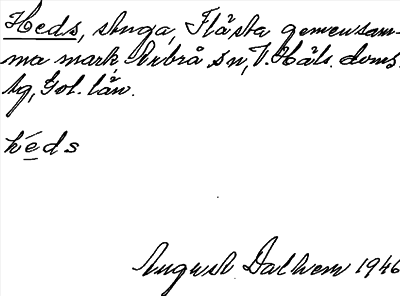 Heds, stuga, Flästa gemensam-
ma mark, Arbrå sn, V. Häls. doms.
tg, Gvl. län.
héds
August Dalhem 1946